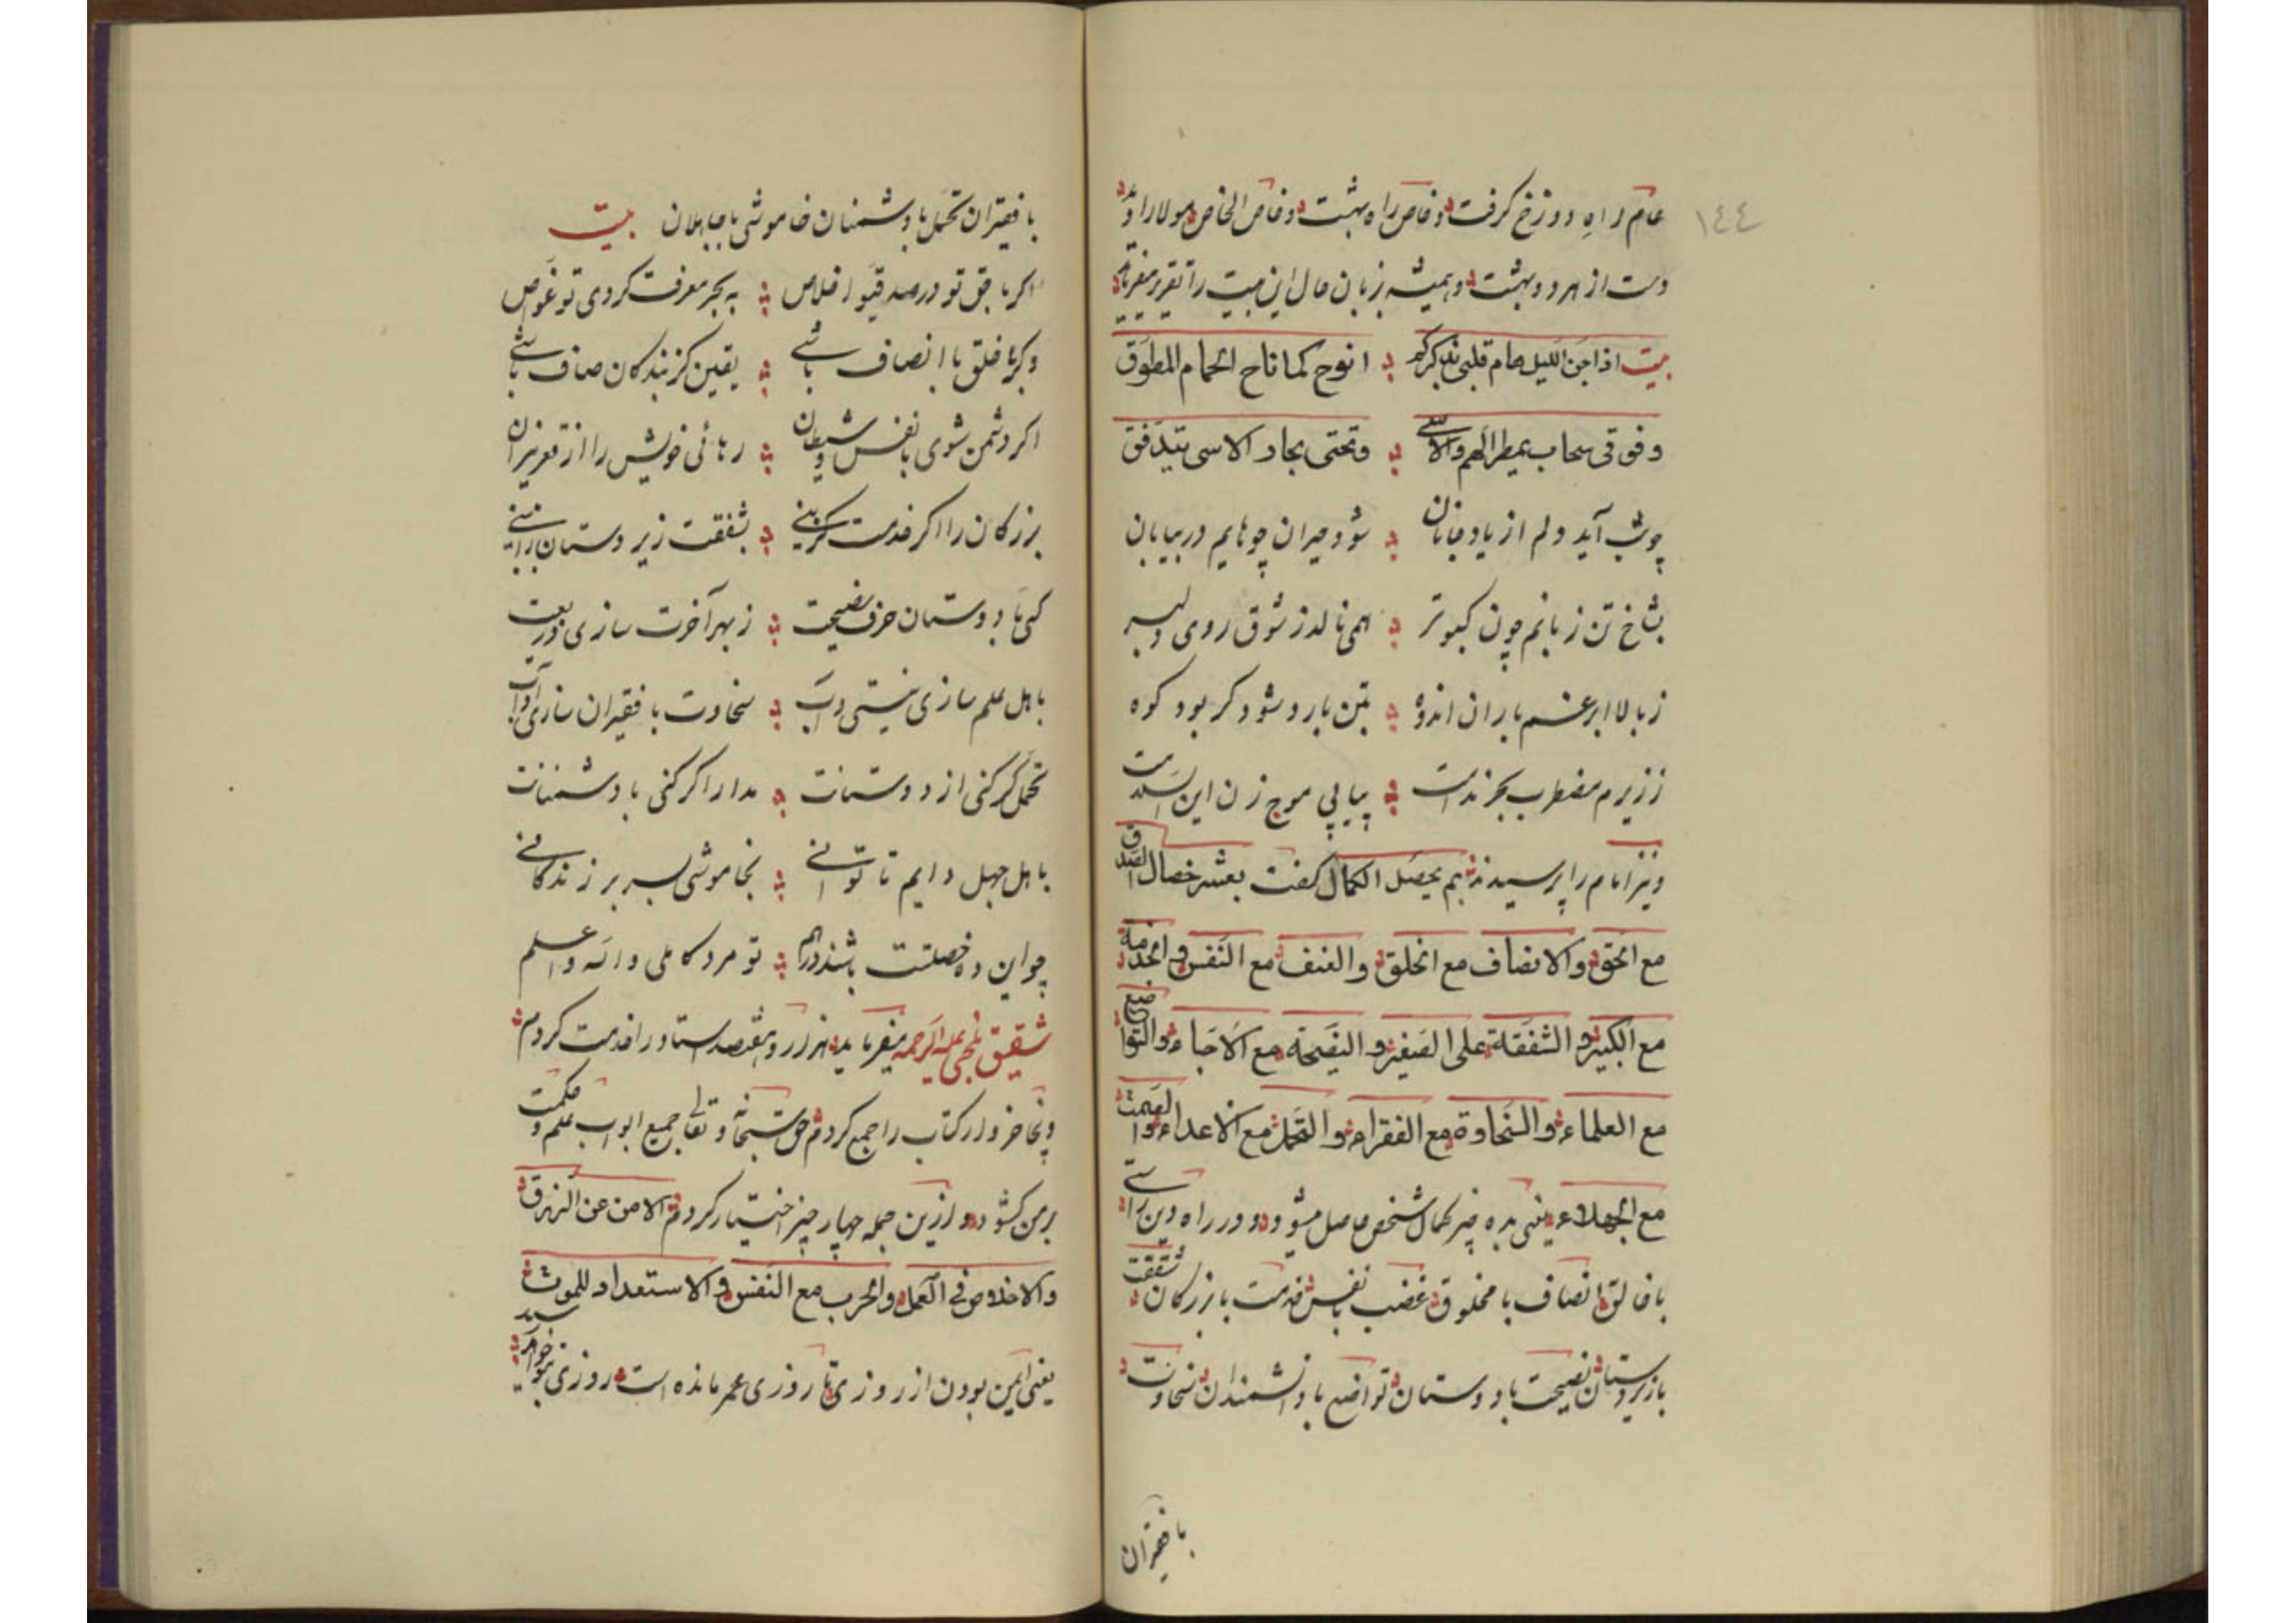 ١٤٤
عام راهِ دوزخ گرفت و خاص راه بهشت و خاص الخاص مولا را و
دست از هر دو بهشت و همیشه بزبان حال این بیت را تقریر میفرماید
بیت اذا جن اللیل هام قلبی بذکرکم انوح کما ناح الحمام المطوق
و فوقی سحاب یمطر الهم والاسی وتحتی بحار الاسی تتدفق
چو شب آید دلم از یاد جانان شود حیران چو هایم در بیابان
بشاخ تن زبانم چون کبوتر همی نالد ز شوق روی دلبر
ز بالا ابر غم باران اندوه بتن بارد شود گر بود کوه
ز زیرم مضطرب بحر ندامت پیاپی موج زن این
و نیز امام را پرسیدند بم یحصل الکمال گفت بعشر خصال الصدق
مع الحق والانصاف مع الخلق والعنف مع النفس والخدمة
مع الکبیر والشفقة علی الصغیر والنصیحة مع الاحباء والتواضع
مع العلماء والسخاوة مع الفقراء والتحمل مع الاعداء والصمت
مع الجهلاء یعنی بده چیز کمال شخص حاصل میشود و در راه دین راستی
با خالق انصاف با مخلوق غضب با نفس خدمت با بزرگان شفقت
با زیردستان نصیحت با دوستان تواضع با دانشمندان سخاوت
با فقیران
با فقیران تحمل با دشمنان خاموشی با جاهلان بیت
اگر با حق تو در صدقی و اخلاص به بحر معرفت کردی تو غوص
وگر با خلق با انصاف باشی یقین کز بندگان صاف باشی
اگر دشمن شوی با نفس و شیطان رهائی خویش را از قعر نیران
بزرگان را اگر خدمت گزینی بشفقت زیر دستان را ببینی
کنی با دوستان حرف نصیحت ز بهر آخرت سازی ودیعت
باهل علم سازی نیستی داب سخاوت با فقیران سازی آداب
تحمل گر کنی از دوستانت مدارا گر کنی با دشمنانت
باهل جهل دایم تا توانی بخاموشی بسر بر زندگانی
چو این ده خصلتت باشند درهم تو مرد کاملی والله واعلم
شقیق بلخی علیه الرحمه میفرماید هزار و هفتصد استاد را خدمت کردم
و پنجاه خروار کتاب را جمع کردم حق سبحانه و تعالی جمیع ابواب علم و حکمت
بر من گشود و ازین جمله چهار چیز اختیار کردم الامن عن الرزق
والاخلاص فی العمل والحرب مع النفس والاستعداد للموت
یعنی ایمن بودن از روزی تا روزی عمر مانده است روزی بتو خواهد رسید